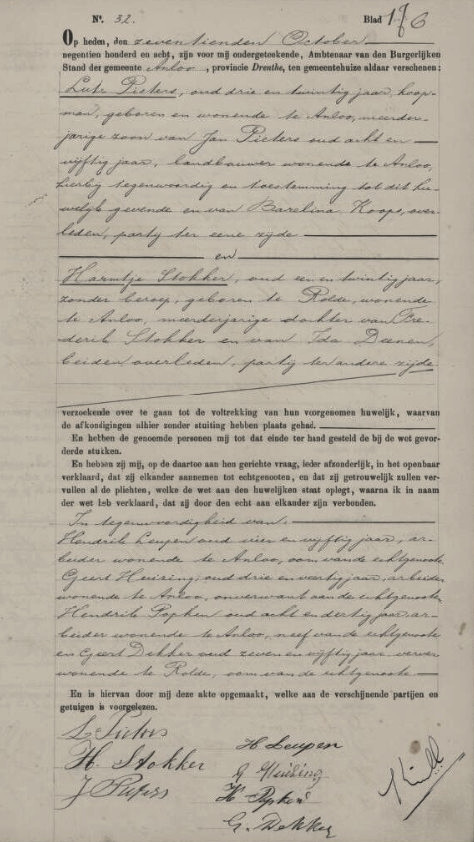 Nº. 32.
Blad 176
Op heden, den zeventienden October
negentien honderd en acht, zijn voor mij ondergeteekende, Ambtenaar van den Burgerlijken
Stand der gemeente Anloo, provincie Drenthe, ten gemeentehuize aldaar verschenen:
Lute Pieters, oud drie en twintig jaar, koop-
man, geboren en wonende te Anloo, meerder-
jarige zoon van Jan Pieters oud acht en
vijftig jaar, landbouwer wonende te Anloo,
hierbij tegenwoordig en toestemming tot dit hu-
welijk gevende en van Barelina Koops, over-
leden, partij ter eene zijde
en
Harmtje Stokker, oud een en twintig jaar,
zonder beroep, geboren te Rolde, wonende
te Anloo, meerderjarige dochter van Fre-
derik Stokker en van Ida Deenen,
beiden overleden, partij ter andere zijde
verzoekende over te gaan tot de voltrekking van hun voorgenomen huwelijk, waarvan
de afkondigingen alhier zonder stuiting hebben plaats gehad.
En hebben de genoemde personen mij tot dat einde ter hand gesteld de bij de wet gevor-
derde stukken.
En hebben zij mij, op de daartoe aan hen gerichte vraag, ieder afzonderlijk, in het openbaar
verklaard, dat zij elkander aannemen tot echtgenooten, en dat zij getrouwelijk zullen ver-
vullen al de plichten, welke de wet aan den huwelijken staat oplegt, waarna ik in naam
der wet heb verklaard, dat zij door den echt aan elkander zijn verbonden.
In tegenwoordigheid van:
Hendrik Leupen oud vier en vijftig jaar, ar-
beider wonende te Anloo, oom van de echtgenoote
Geert Huizing, oud drie en veertig jaar, arbeider
wonende te Anloo, onverwant aan de echtgenoote
Hendrik Popken oud acht en dertig jaar ar-
beider wonende te Anloo, neef van de echtgenoote
en Geert Dekker oud zeven en vijftig jaar verver
wonende te Rolde, oom van de echtgenoote
En is hiervan door mij deze akte opgemaakt, welke aan de verschijnende partijen en
getuigen is voorgelezen.
L Pieters
H. Stokker
J Pieters
H Leupen
G Huizing
H Popken
G. Dekker